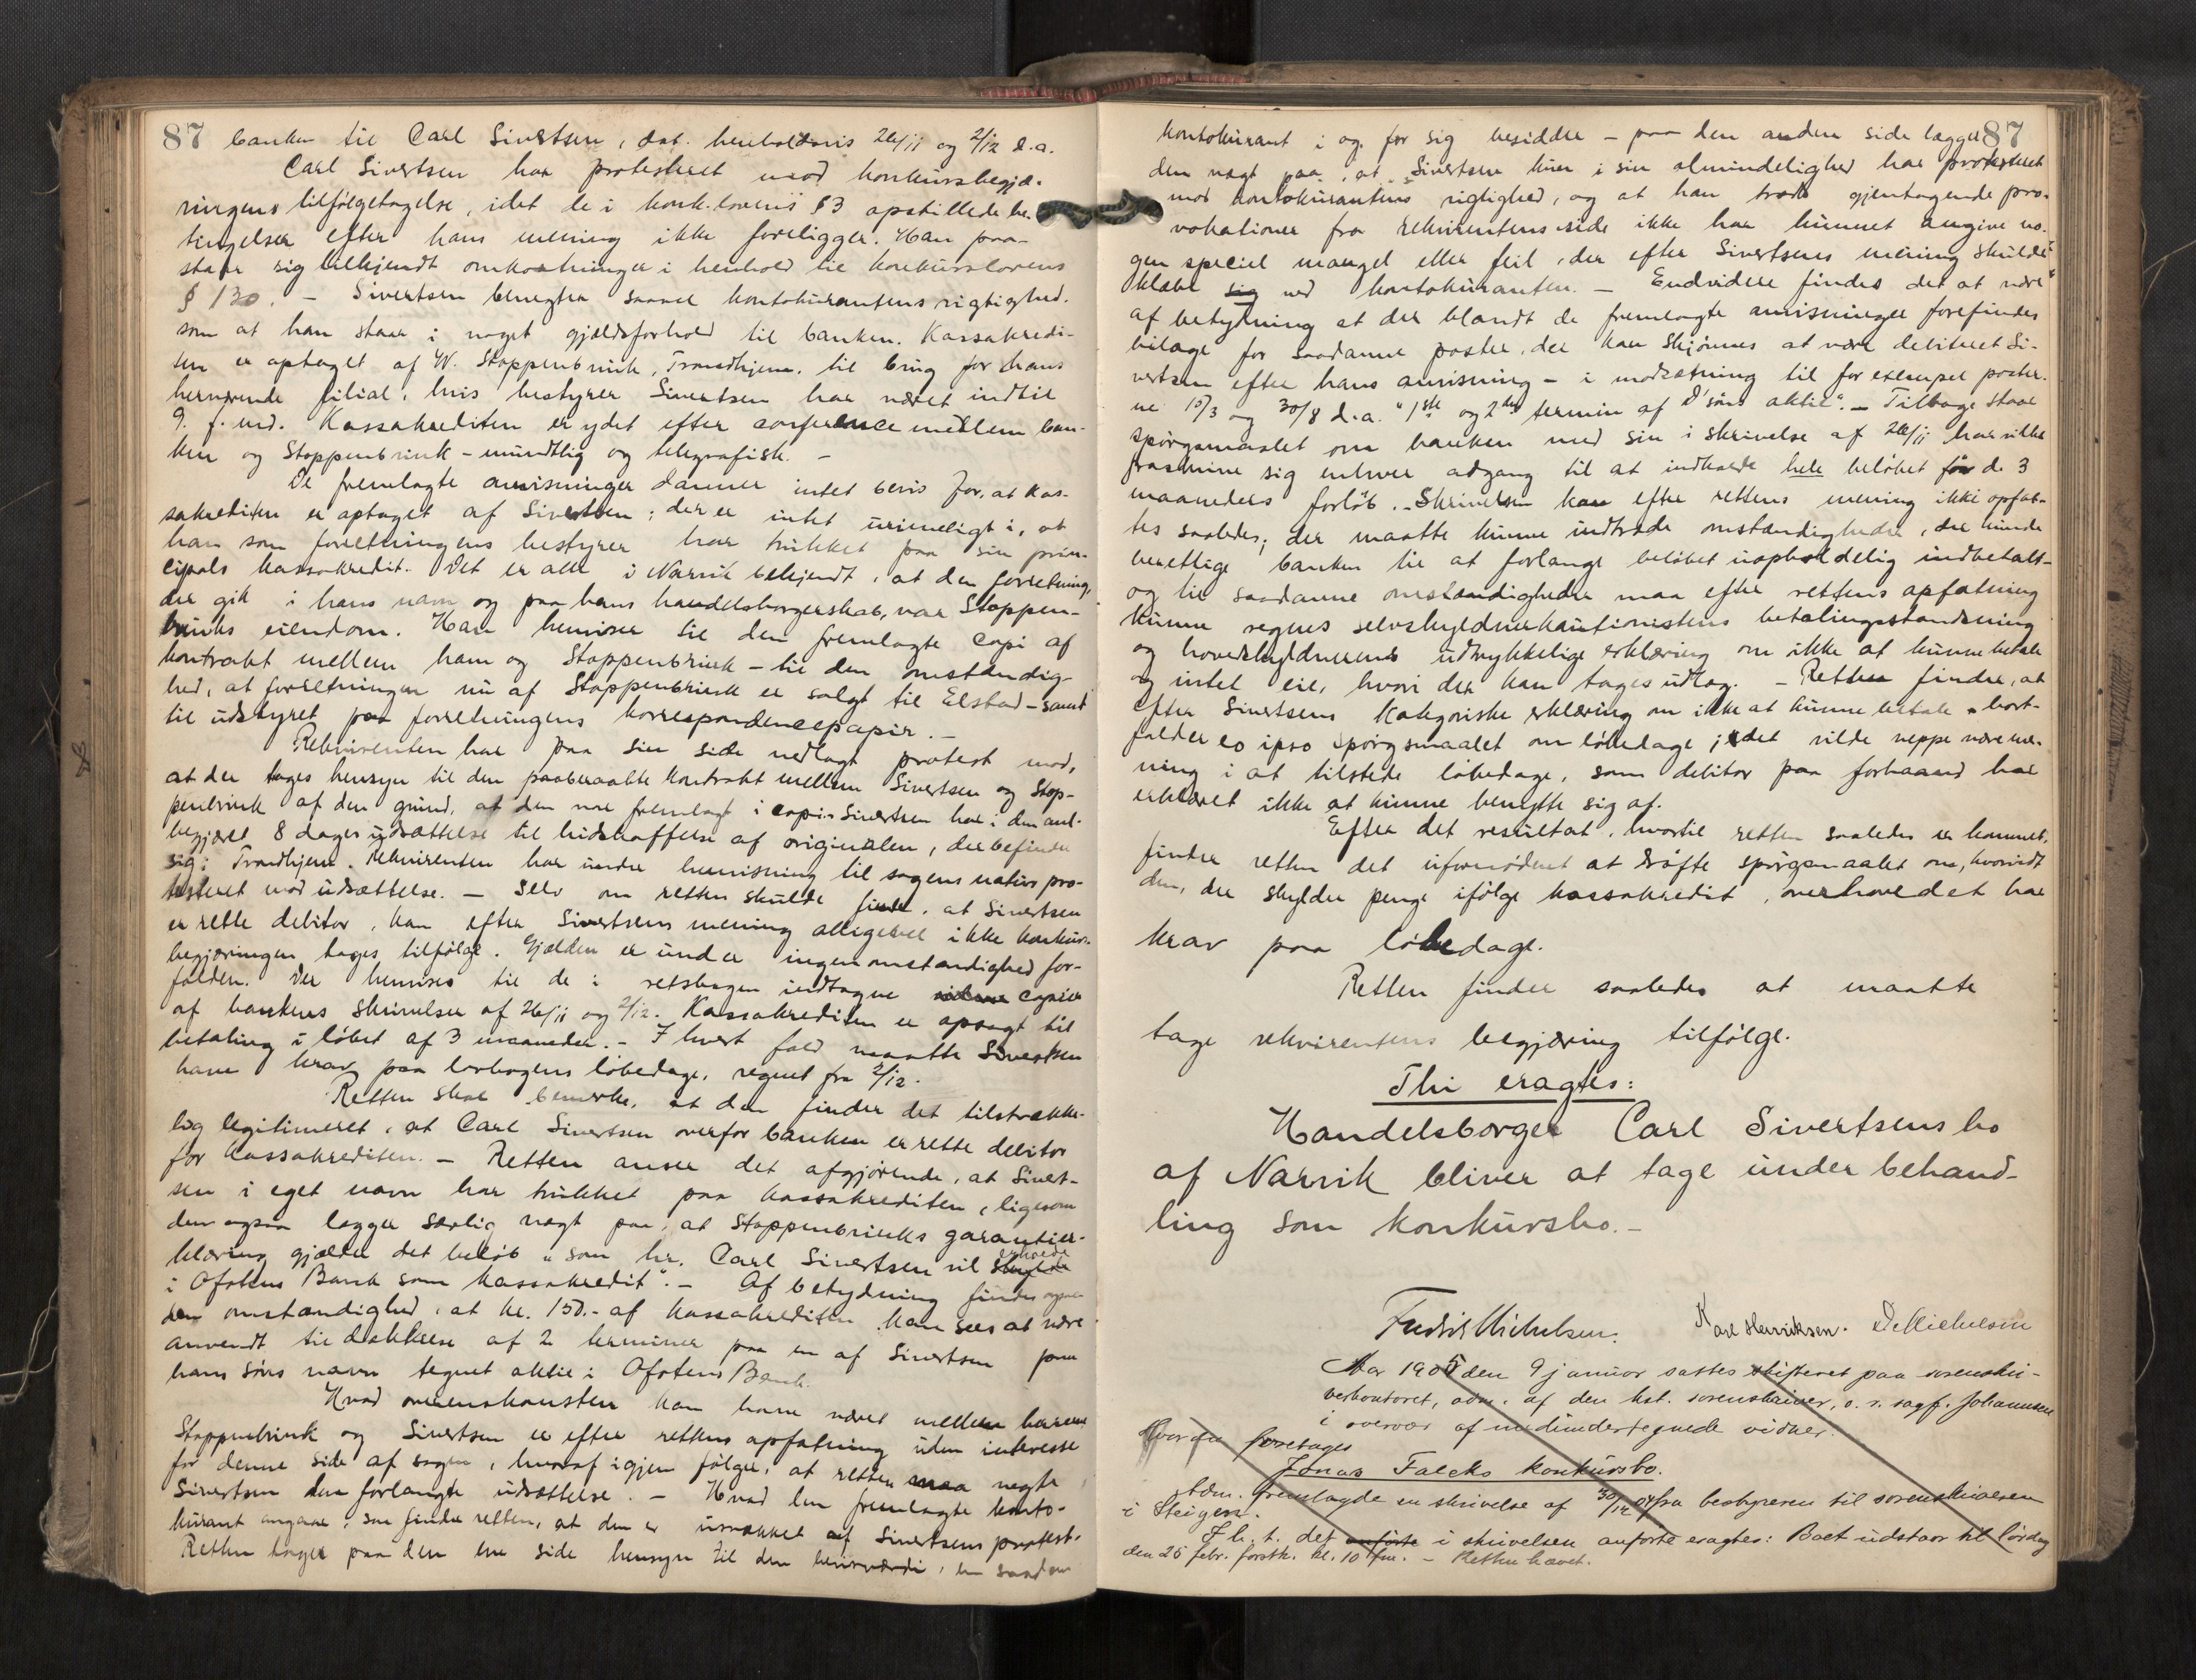 87
banken til Carl Sivertsen, dat. henholdsvis 26/11 og 2/12 d.a.
Carl Sivertsen har protesteret mod konkursbegjæ-
ringens tilfølgetagelse, idet de i konk.lovens § 3 opstillede be-
tingelser efter hans mening ikke foreligger. Han paa-
staar sig tilkjendt omkostninger i henhold til konkurslovens
§ 130. – Sivertsen benegter saavel kontokurantens rigtighed.
som at han staar i noget gjældsforhold til banken. Kassakredi-
ten er optaget af W. Stoppenbrink, Trondhjem, til brug for hans
herværende filial, hvis bestyrer Sivertsen har været indtil
9. f. md. Kassakrediten er ydet efter conference mellem ban-
ken og Stoppenbrink – mundtlig og telegrafisk. –
De fremlagte anvisninger danner intet bevis for, at kas-
sakrediten er optaget af Sivertsen; der er intet urimeligt i, at
han som forretningens bestyrer har trukket paa sin prin-
cipals kassakredit. Det er alle i Narvik bekjendt, at den forretning,
der gik i hans navn og paa hans handelsborgerskab, var Stoppen-
brinks eiendom. Han henviser til den fremlagte copi af
kontrakt mellem ham og Stoppenbrink – til den omstændig-
hed, at forretningen nu af Stoppenbrink er solgt til Elstad – samt
til udstyret paa forretningens korrespondencepapir. –
Rekvirenten har paa sin side nedlagt protest mod,
at der tages hensyn til den paaberaabte kontrakt mellem Sivertsen og Stop-
penbrink af den grund, at den var fremlagt i copi. Sivertsen har i den anl.
begjæret 8 dages udsættelse til tilskaffelse af originalen, der befinder
sig i Trondhjem. Rekvirenten har under henvisning til sagens natur pro-
testeret mod udsættelse. – Selv om retten skulde finde, at Sivertsen
er rette debitor, kan efter Sivertsens mening alligevel ikke konkurs-
begjæringen tages tilfølge. Gjælden er under ingen omstændighed for-
falden. Der henvises til de i retsbogen indtagne copier
af bankens skrivelser af 26/11 og 2/12. Kassakrediten er opsagt til
betaling i løbet af 3 maaneder. – I hvert fald maatte Sivertsen
have krav paa lovbogens løbedage, regnet fra 2/12.
Retten skal bemerke, at den finder det tilstrække-
lig legitimeret, at Carl Sivertsen overfor banken er rette debitor
for kassakrediten. – Retten anser det afgjørende, at Sivert-
sen i eget navn har trukket paa kassakrediten, ligesom
den ogsaa lægger særlig vægt paa, at Stoppenbrinks garantier-
klæring gjælder det beløb "som hr. Carl Sivertsen vil erholde
i Ofotens Bank som kassakredit". – Af betydning findes ogsaa
den omstændighed, at kr. 150.- af kassakrediten kan sees at være
anvendt til dækkelse af 2 terminer paa en af Sivertsen paa
hans søns navn tegnet aktie i Ofotens Bank.
Hvad overenskomsten kan have været mellem
Stoppenbrink og Sivertsen er efter rettens opfatning uden interesse
for denne side af sagen, hvoraf igjen følger, at retten maa negte
Sivertsen den forlangte udsættelse. – Hvad den fremlagte konto-
kurant angaar, saa finder retten, at den er usvækket af Sivertsens protest.
Retten tager paa den ene side hensyn til den beviskraft, en saadan
87
kontokurant i og for sig besidder – paa den anden side lægger
den vægt paa, at Sivertsen kun i sin almindelighed har protesteret
mod kontokurantens rigtighed, og at han trods gjentagende pro-
vokationer fra rekvirentens side ikke har kunnet angive no-
gen speciel mangel eller feil, der efter Sivertsens mening skulde
klæbe ved kontokuranten. – Endvidere findes det at være
af betydning at der blandt de fremlagte anvisninger forefindes
bilage for saadanne poster, der kan skjønnes at være debiteret Si-
vertsen efter hans anvisning – i modsætning til for exempel poster-
ne 15/3 og 30/8 d.a. "1ste og 2den termin af D's søns aktie". – Tilbage staar
spørgsmaalet om banken med sin i skrivelse af 26/11 har villet
fraskrive sig enhver adgang til at indkræve hele beløbet før de 3
maaneders forløb. – Skrivelsen kan efter rettens mening ikke opfat-
tes saaledes; der maatte kunne indtræde omstændigheder, der kunde
berettige banken til at forlange beløbet uopholdelig indbetalt –
og til saadanne omstændigheder maa efter rettens opfatning
kunne regnes selvskyldnerkautionistens betalingsstandsning
og hovedskyldnerens udtrykkelige erklæring om ikke at kunne betale
og intet eie, hvori der kan tages udlæg. – Retten finder, at
efter Sivertsens kategoriske erklæring om ikke at kunne betale – bort-
falder eo ipso spørgsmaalet om løbedage; det vilde neppe være me-
ning i at tilstede løbedage, som debitor paa forhaand har
erklæret ikke at kunne benytte sig af.
Efter det resultat, hvortil retten saaledes er kommet,
finder retten det ufornødent at drøfte spørgsmaalet om, hvorvidt
den, der skylder penge ifølge kassakredit, overhovedet har
krav paa løbedage.
Retten finder saaledes at maatte
tage rekvirentens begjæring tilfølge.
Thi eragtes:
Handelsborger Carl Sivertsens bo
af Narvik bliver at tage under behand-
ling som konkursbo. –
Fredrik Michelsen. Karl Henriksen. D Michelsen
Aar 1905 den 9 januar sattes skifteret paa sorenskri-
verkontoret, adm. af den kst. sorenskriver, o. r. sagf. Johannesen
i overvær af medundertegnede vidner.
Hvorda foretages
Jonas Falcks konkursbo.
Adm. fremlagde en skrivelse af 30/12 04 fra bestyreren til sorenskriveren
i Steigen.
I h. t. det anførte i skrivelsen anførte eragtes: Boet udstaar til lørdag
den 25 febr. førstk. kl. 10 fm. – Retten hævet.